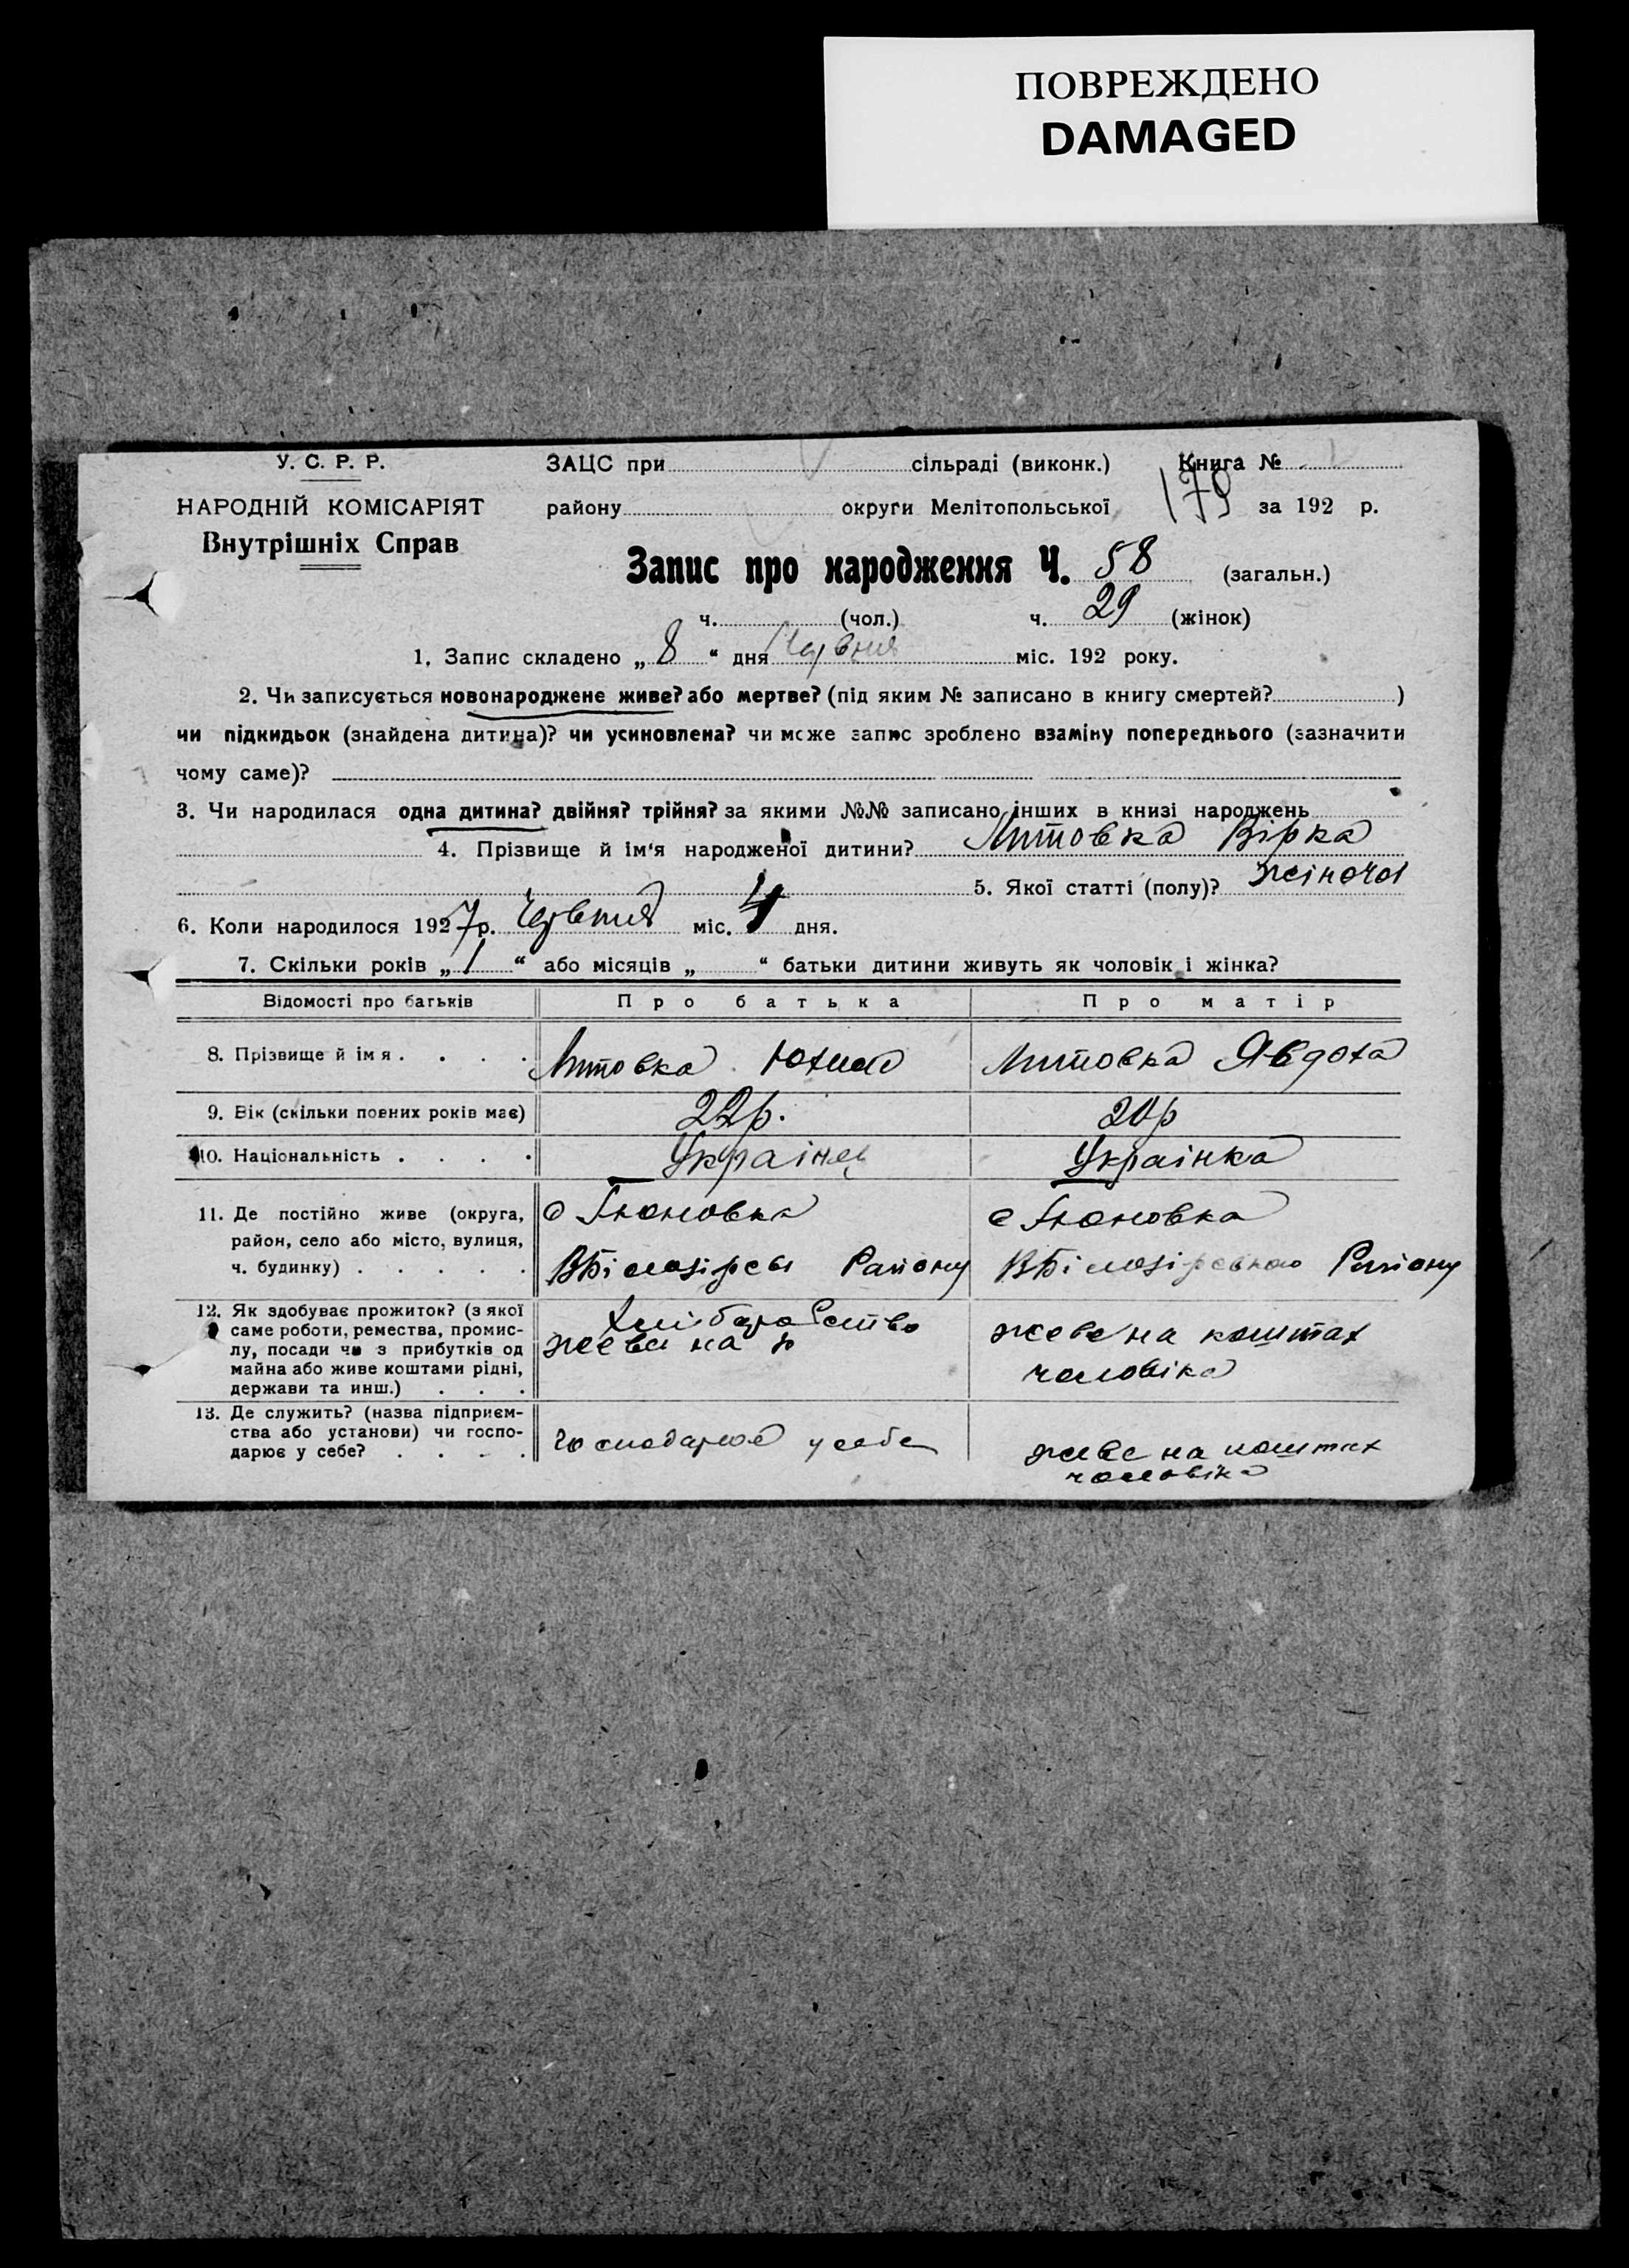 ПОВРЕЖДЕНО
DAMAGED
У. С. Р. Р.
НАРОДНІЙ КОМІСАРІЯТ
Внутрішніх Справ
ЗАЦС при сільраді (виконк.) Книга №
району округи Мелітопольської 179 за 192 р.
Запис про народження Ч. 58 (загальн.)
ч. (чол.) ч. 29 (жінок)
1. Запис складено „ 8 “ дня Червня міс. 192 року.
2. Чи записується новонароджене живе? або мертве? (під яким № записано в книгу смертей? )
чи підкидьок (знайдена дитина)? чи усиновлена? чи може запис зроблено взаміну попереднього (зазначити
чому саме)?
3. Чи народилася одна дитина? двійня? трійня? за якими №№ записано інших в книзі народжень
4. Прізвище й ім'я народженої дитини? Литовка Вірка
5. Якої статті (полу)? жіночої
6. Коли народилося 1927 р. Червня міс. 4 дня.
7. Скільки років „ 1 “ або місяців „ “ батьки дитини живуть як чоловік і жінка?
Відомості про батьків Про батька Про матір
8. Прізвище й імя . . . . Литовка Юхим Литовка Явдоха
9. Вік (скільки повних років має) 22р. 20р
10. Національність . . . . Украінец Украінка
11. Де постійно живе (округа,
район, село або місто, вулиця,
ч. будинку) . . . . .
с
ВБілозірсы Району
с
ВБілозірського Району
12. Як здобуває прожиток? (з якої
саме роботи, ремества, промис-
лу, посади чи з прибутків од
майна або живе коштами рідні,
держави та инш.) . . .
Хлібаробство
живе на
живе на коштах
чоловіка
13. Де служить? (назва підприєм-
ства або установи) чи госпо-
дарює у себе? . . . .
господарює у себе
живе на коштах
чоловіка